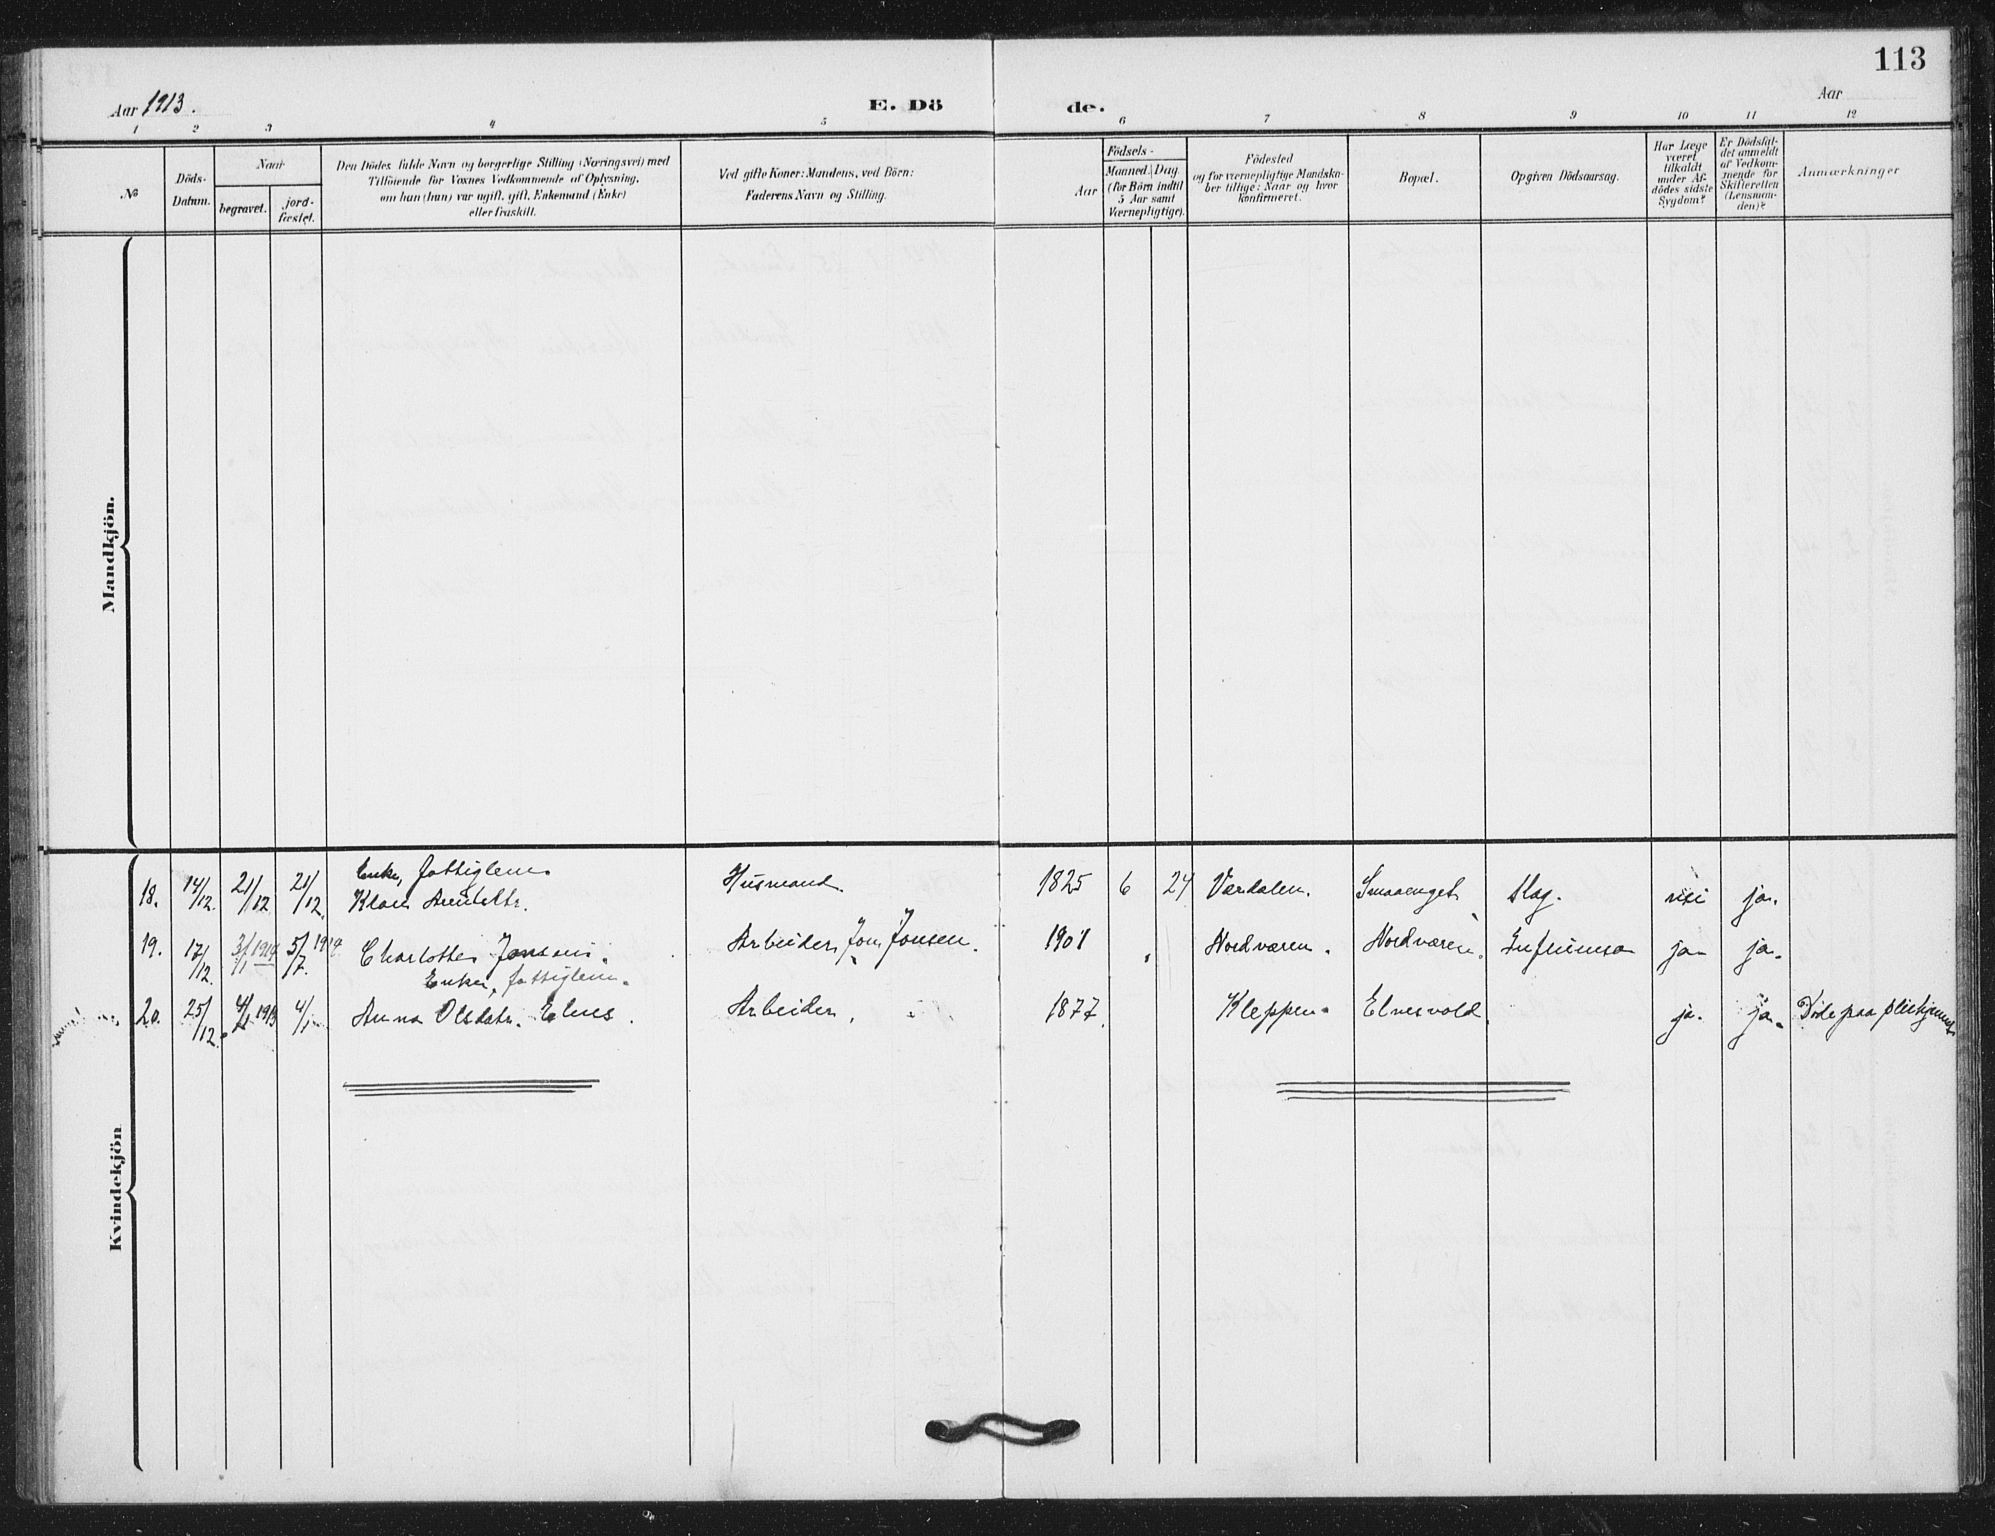 113
Aar 1913.
E. Dö
de.
Aar
1 2 3 4 5 6 7 8 9 10 11 12
No
Döds-
Datum.
Naar
begravet.
jord-
fæstet.
Den Dödes fulde Navn og borgerlige Stilling (Næringsvei) med
Tilföiende for Voxnes Vedkommende af Oplysning,
om han (hun) var ugift, gift, Enkemand (Enke)
eller fraskilt.
Ved gifte Koner: Mandens, ved Börn:
Faderens Navn og Stilling.
Aar
Födsels-
Maaned. Dag.
(for Börn indtil
5 Aar samt
Værnepligtige).
Födested
og for værnepligtige Mandska-
ber tillige: Naar og hvor
konfirmeret.
Bopæl.
Opgiven Dödsaarsag.
Har Læge
været
tilkaldt
under Af-
dödes sidste
Sygdom?
Er Dödsfal-
det anmeldt
af Vedkom-
mende for
Skifteretten
(Lensman-
den)?
Anmærkninger
Mandkjön.
Enke, fattiglem
18. 14/12. 21/12 21/12. Husmand. 1825 6 24 Værdalen. Smaaenget Slag. nei ja.
19. 17/12. 3/1 1914 5/7. 1914. Charlotte Jonsen. Arbeider Jon Jonsen. 1901 Nordværen. Nordværen. Influensa ja ja.
Enke, fattiglem.
20. 25/12. 4/1 Anna Olsdatr. Elnes. Arbeider. 1877. Kleppen. Elvesvold. ja. ja. Döde paa
Kvindekjön